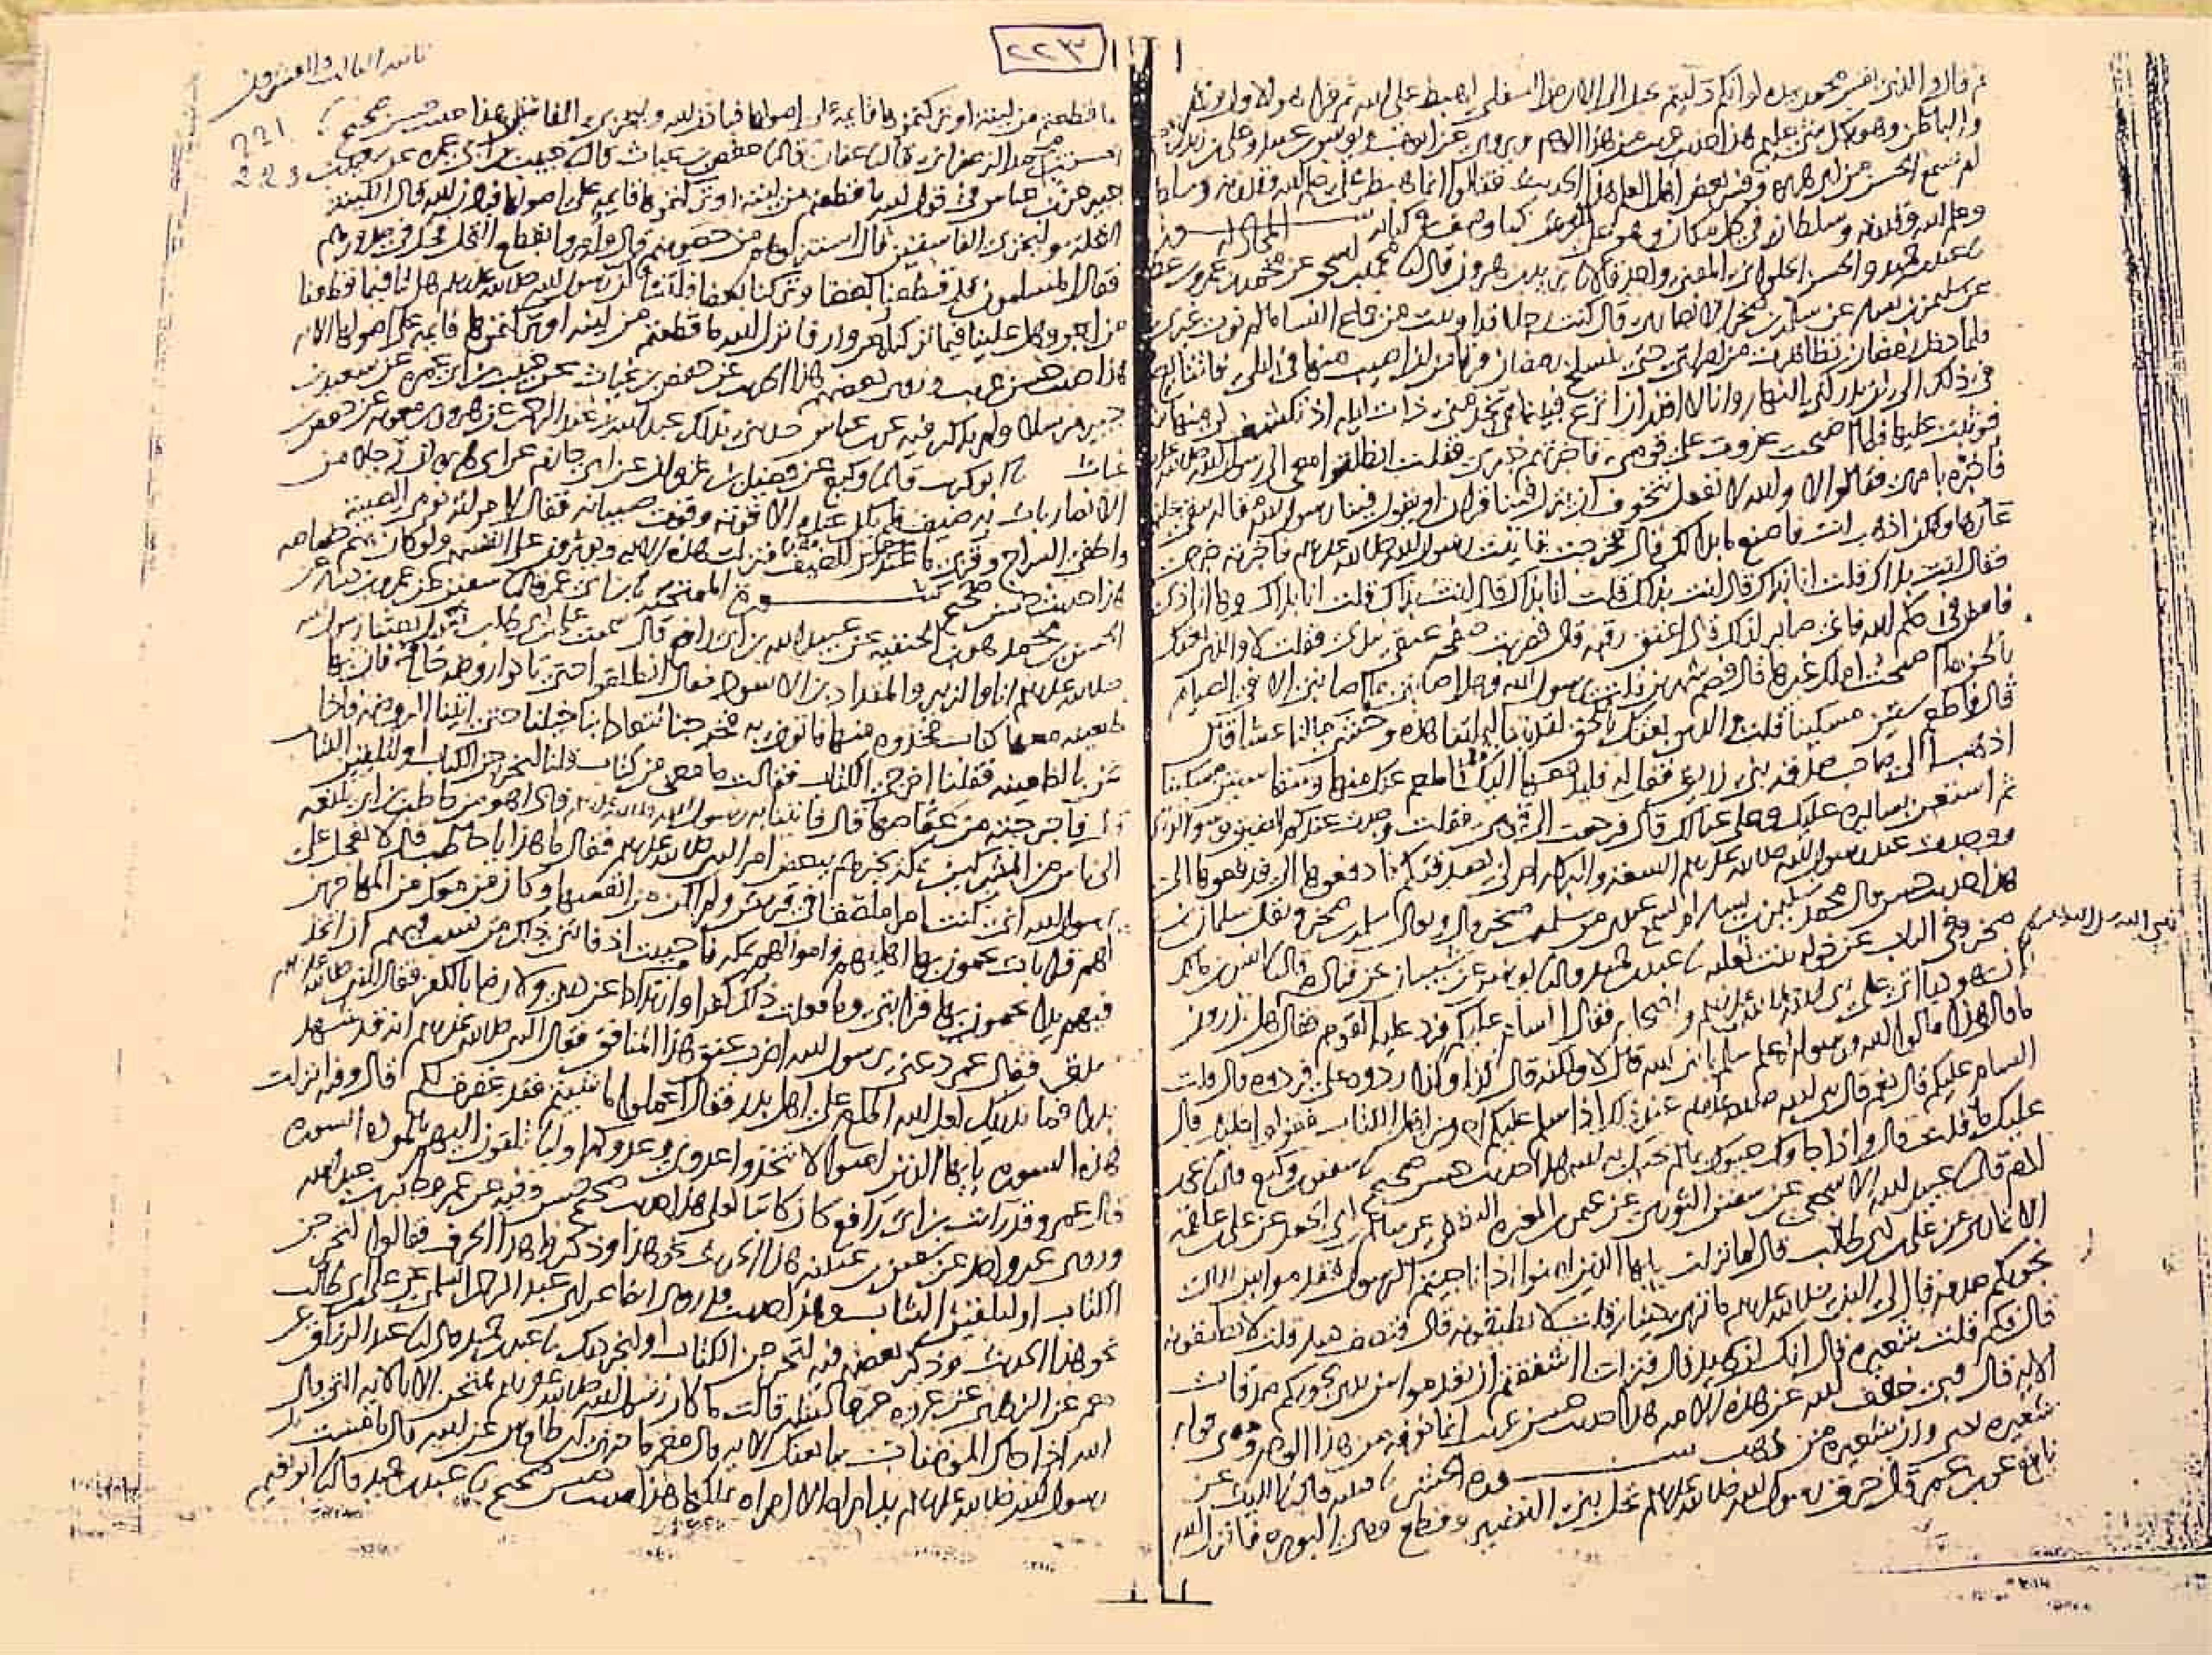 ٢٢٣
ثم قال والذي نفس محمد بيده لو انكم دليتم بحبل الى الارض السفلى لهبط على الله ثم قرا هو الاول والاخر
والباطن وهو بكل شي عليم هذا حديث غريب من هذا الوجه ويروى عن ايوب ويونس بن عبيد وعلي بن زيد
لم يسمع الحسن من ابي هريرة وفسر بعض اهل العلم هذا الحديث فقالوا انما هبط على علم الله وقدرته وسلطانه
وعلم الله وقدرته وسلطانه في كل مكان وهو على العرش كما وصف في كتابه المجادلة
عبد بن حميد والحسن الحلواني المعنى واحد قالا يزيد بن هرون قال محمد بن اسحق عن محمد بن عمرو بن عطا
عن سليمن بن يسار عن سلمة بن صخر الانصاري قال كنت رجلا قد اوتيت من جماع النسا ما لم يوت غيري
فلما دخل رمضان تظاهرت من امراتي حتى ينسلخ رمضان فرقا من ان اصيب منها في الليل فاتتابع
في ذلك الى ان يدركني النهار وانا لا اقدر ان انزع فبينا هي تخدمني ذات ليلة اذ تكشف لي منها
فوثبت عليها فلما اصبحت غدوت على قومي فاخبرتهم خبري فقلت انطلقوا معي الى رسول الله
فاخبره بامري فقالوا لا والله لا نفعل نتخوف ان ينزل فينا قران او يقول فينا رسول الله مقالة يبقى علينا
عارها ولكن اذهب انت فاصنع ما بدا لك قال فخرجت فاتيت رسول الله صلى الله عليه وسلم فاخبرته خبري
فقال انت بذاك قلت انا بذاك قال انت بذاك قلت انا بذاك قال انت بذاك قلت انا بذاك وها انا ذا
فامض في حكم الله فاني صابر لذلك قال اعتق رقبة قال فضربت صفحة عنقي بيدي فقلت لا والذي بعثك
بالحق ما اصبحت املك غيرها قال فصم شهرين قلت يا رسول الله وهل اصابني ما اصابني الا في الصيام
قال فاطعم ستين مسكينا قلت والذي بعثك بالحق لقد بتنا ليلتنا هذه وحشى ما لنا عشا قال
اذهب الى صاحب صدقة بني زريق فقل له فليدفعها اليك فاطعم عنك منها وسقا ستين مسكينا
ثم استعن بسايره عليك وعلى عيالك قال فرجعت الى قومي فقلت وجدت عندكم الضيق وسو الراي
ووجدت عند رسول الله صلى الله عليه وسلم السعة والبركة امر لي بصدقتكم فادفعوها الي فدفعوها الي
هذا حديث حسن قال محمد سليمن بن يسار لم يسمع عندي من سلمة بن صخر قال ويقال سلمة بن صخر ويقال سلمان بن
صخر وفي الباب عن خولة بنت ثعلبة عبد بن حميد قال يونس عن شيبان عن قتادة قال انس بن مالك
ان يهوديا اتى على نبي الله صلى الله عليه وسلم واصحابه فقال السام عليكم فرد عليه القوم فقال هل تدرون
ما قال هذا قالوا الله ورسوله اعلم سلم يا نبي الله قال لا ولكنه قال كذا وكذا ردوه علي فردوه قال قلت
السام عليكم قال نعم قال نبي الله صلى الله عليه وسلم عند ذلك اذا سلم عليكم احد من اهل الكتاب فقولوا عليك قال
عليك ما قلت قال واذا جاوك حيوك بما لم يحيك به الله هذا حديث حسن صحيح سفين بن وكيع قال يحيى
ادم قال عبيد الله الاشجعي عن سفين الثوري عن عثمن بن المغيرة الثقفي عن سالم بن ابي الجعد عن علي بن علقمة
الانماري عن علي بن ابي طالب قال لما نزلت يا ايها الذين امنوا اذا ناجيتم الرسول فقدموا بين يدي
نجويكم صدقة قال لي النبي صلى الله عليه وسلم ما ترى دينار قلت لا يطيقونه قال فنصف دينار قلت لا يطيقونه
قال فكم قلت شعيرة قال انك لزهيد قال فنزلت ااشفقتم ان تقدموا بين يدي نجويكم صدقات
الاية قال فبي خفف الله عن هذه الامة هذا حديث حسن غريب انما نعرفه من هذا الوجه ومعنى قوله
شعيرة يعني وزن شعيرة من ذهب سورة الحشر قتيبة قال الليث عن
نافع عن ابن عمر قال حرق رسول الله صلى الله عليه وسلم نخل بني النضير وقطع وهي البويرة فانزل الله
ما قطعتم من لينة او تركتموها قايمة على اصولها فباذن الله وليخزي الفاسقين هذا حديث حسن صحيح
الحسن بن محمد الزعفراني قال عفان قال حفص بن غياث قال حبيب بن ابي عمرة عن سعيد بن
جبير عن ابن عباس في قول الله ما قطعتم من لينة او تركتموها قايمة على اصولها فباذن الله قال اللينة
النخلة وليخزي الفاسقين قال استنزلوهم من حصونهم قال وامروا بقطع النخل فحك في صدورهم
فقال المسلمون قد قطعنا بعضا وتركنا بعضا فلنسالن رسول الله صلى الله عليه وسلم هل لنا فيما قطعنا
من اجر وهل علينا فيما تركنا من وزر فانزل الله ما قطعتم من لينة او تركتموها قايمة على اصولها الاية
هذا حديث حسن غريب وروى بعضهم هذا الحديث عن حفص بن غياث عن حبيب بن ابي عمرة عن سعيد بن
جبير مرسلا ولم يذكر فيه عن ابن عباس حدثني بذلك عبد الله بن عبد الرحمن عن هرون بن معوية عن حفص بن
غياث ابو كريب قال وكيع عن فضيل بن غزوان عن ابي حازم عن ابي هريرة ان رجلا من
الانصار بات به ضيف فلم يكن عنده الا قوته وقوت صبيانه فقال لامراته نومي الصبية
واطفي السراج وقربي للضيف ما عندك فنزلت هذه الاية ويوثرون على انفسهم ولو كان بهم خصاصة
هذا حديث حسن صحيح سورة الممتحنة ابن ابي عمر قال سفين عن عمرو بن دينار عن
الحسن بن محمد هو ابن الحنفية عن عبيد الله بن ابي رافع قال سمعت علي بن ابي طالب يقول بعثنا رسول الله
صلى الله عليه وسلم انا والزبير والمقداد بن الاسود فقال انطلقوا حتى تاتوا روضة خاخ فان بها
ظعينة معها كتاب فخذوه منها فاتوني به فخرجنا تتعادى بنا خيلنا حتى اتينا الروضة فاذا
نحن بالظعينة فقلنا اخرجي الكتاب فقالت ما معي من كتاب قلنا لتخرجن الكتاب او لتلقين الثياب
قال فاخرجته من عقاصها قال فاتينا به رسول الله صلى الله عليه وسلم فاذا هو من حاطب بن ابي بلتعة
الى ناس من المشركين بمكة يخبرهم ببعض امر النبي صلى الله عليه وسلم فقال ما هذا يا حاطب قال لا تعجل علي
يا رسول الله اني كنت امرا ملصقا في قريش ولم اكن من انفسها وكان من معك من المهاجرين
لهم قرابات يحمون بها اهليهم واموالهم بمكة فاحببت اذ فاتني ذلك من نسب فيهم ان اتخذ
فيهم يدا يحمون بها قرابتي وما فعلت ذلك كفرا وارتدادا عن ديني ولا رضا بالكفر فقال النبي صلى الله عليه وسلم
صدق فقال عمر دعني يا رسول الله اضرب عنق هذا المنافق فقال النبي صلى الله عليه وسلم انه قد شهد
بدرا فما يدريك لعل الله اطلع على اهل بدر فقال اعملوا ما شيتم فقد غفرت لكم قال وفيه انزلت
هذه السورة يا ايها الذين امنوا لا تتخذوا عدوي وعدوكم اوليا تلقون اليهم بالمودة السورة
قال عمرو وقد رايت ابن ابي رافع كان كاتبا لعلي هذا حديث حسن صحيح وفيه عن عمر وجابر بن عبد الله
وروى غير واحد عن سفين بن عيينة هذا الحديث نحو هذا وذكروا هذا الحرف فقالوا لتخرجن
الكتاب او لتلقين الثياب وهذا حديث قد روي ايضا عن ابي عبد الرحمن السلمي عن علي بن ابي طالب
نحو هذا الحديث وذكر بعضهم فيه لتخرجن الكتاب او لنجردنك عبد بن حميد قال عبد الرزاق عن
معمر عن الزهري عن عروة عن عايشة قالت ما كان رسول الله صلى الله عليه وسلم يمتحن الا بالاية التي قال
الله اذا جاك المومنات يبايعنك الاية قال معمر فاخبرني ابن طاوس عن ابيه قال ما مست يد
رسول الله صلى الله عليه وسلم يد امراة الا امراة يملكها هذا حديث حسن صحيح عبد بن حميد قال ابو نعيم